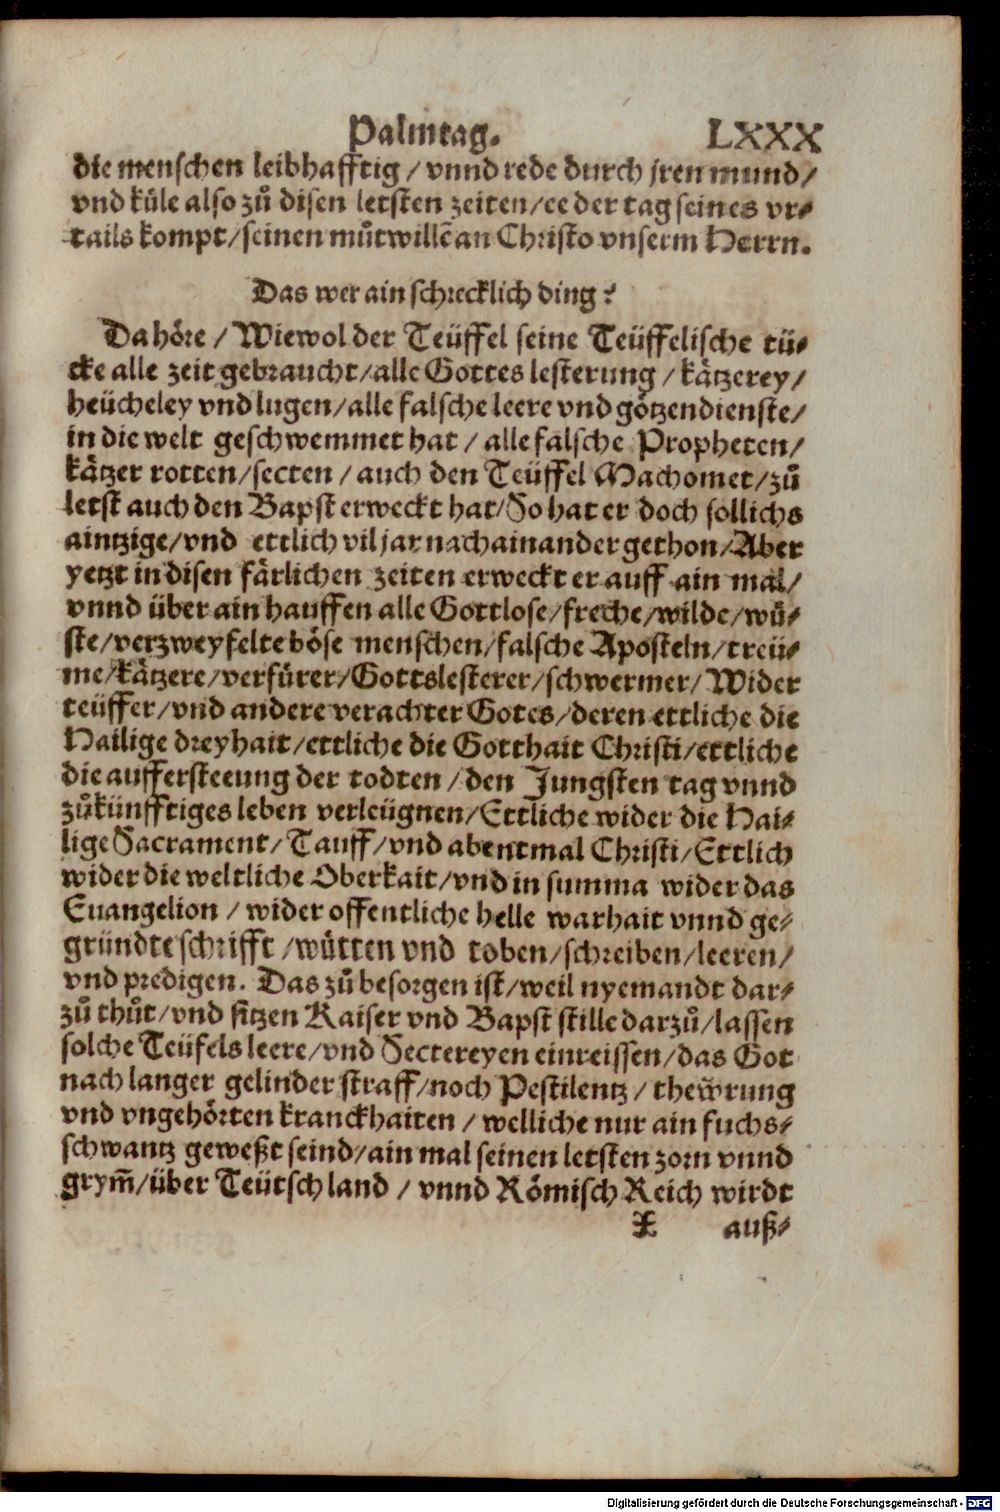 Palmtag. LXXX
die menschen leibhafftig / vnnd rede durch jren mund /
vnd küle also zů disen letsten zeiten / ee der tag seines vr-
tails kompt / seinen můtwillē an Christo vnserm Herrn.
Das wer ain schrecklich ding?
Da höre / Wiewol der Teüffel seine Teüffelische tü-
cke alle zeit gebraucht / alle Gottes lesterung / kätzerey /
heücheley vnd lugen / alle falsche leere vnd götzendienste /
in die welt geschwemmet hat / alle falsche Propheten /
kätzer rotten / secten / auch den Teüffel Machomet / zů
letst auch den Bapst erweckt hat / So hat er doch sollichs
aintzige / vnd ettlich vil jar nach ainander gethon / Aber
yetzt in disen färlichen zeiten erweckt er auff ain mal /
vnnd über ain hauffen alle Gottlose / freche / wilde / wů-
ste / verzweyfelte böse menschen / falsche Aposteln / treü-
me / kätzere / verfürer / Gottslesterer / schwermer / Wider
teüffer / vnd andere verachter Gotes / deren ettliche die
Hailige dreyhait / ettliche die Gotthait Christi / ettliche
die auffersteeung der todten / den Jungsten tag vnnd
zůkünfftiges leben verleügnen / Ettliche wider die Hai-
lige Sacrament / Tauff / vnd abentmal Christi / Ettlich
wider die weltliche Oberkait / vnd in summa wider das
Euangelion / wider offentliche helle warhait vnnd ge-
gründte schrifft / wütten vnd toben / schreiben / leeren /
vnd predigen. Das zů besorgen ist / weil nyemandt dar-
zů thůt / vnd sitzen Kaiser vnd Bapst stille darzů / lassen
solche Teüfels leere / vnd Sectereyen einreissen / das Got
nach langer gelinder straff / noch Pestilentz / thewrung
vnd vngehörten kranckhaiten / welliche nur ain fuchs-
schwantz geweßt seind / ain mal seinen letsten zorn vnnd
grym̄ / über Teütsch land / vnnd Römisch Reich wirdt
X auß-
Digitalisierung gefördert durch die Deutsche Forschungsgemeinschaft - DFG